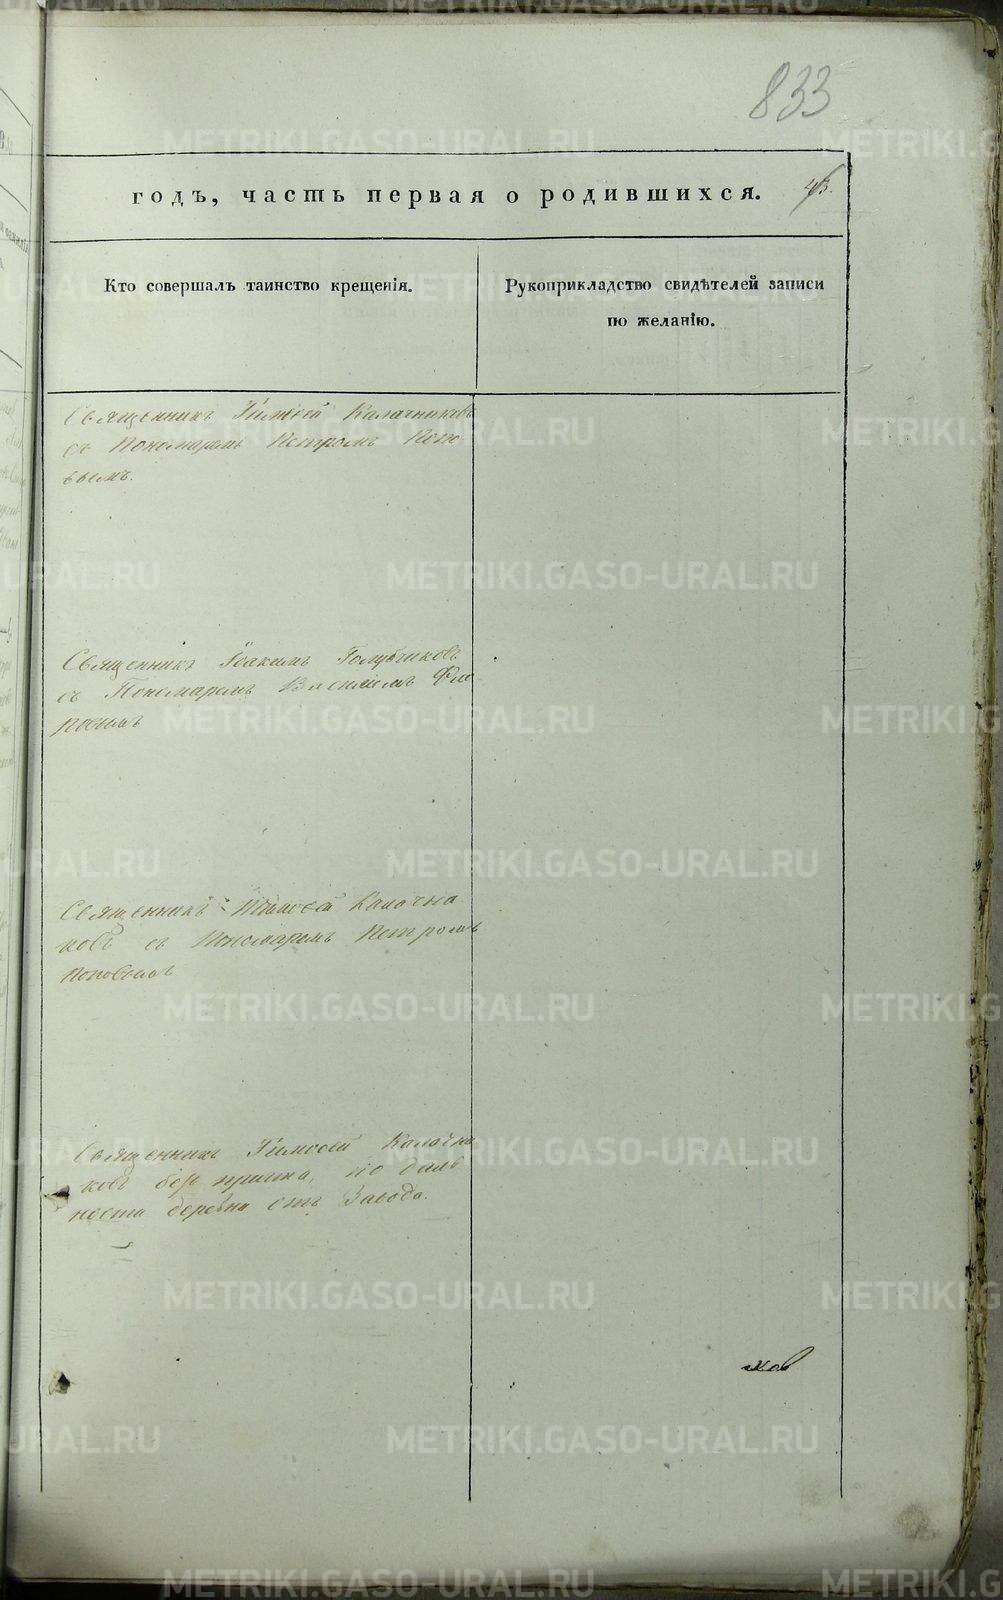 833
годъ, часть первая о родившихся.
43.
Кто совершалъ таинство крещенія.
Рукоприкладство свидѣтелей записи
по желанію.
Священникъ Тимоѳей Калачниковъ
съ Пономаремъ Петромъ Попо
вымъ.
Священникъ Іоакимъ Голубчиковъ
съ Пономаремъ
Священникъ Тимоѳей Калачни
ковъ съ Пономаремъ Петромъ
Поповымъ
Священникъ Тимоѳей Калачни
ковъ безъ причта, по даль
ности деревни отъ Завода.
ковъ
METRIKI.GASO-URAL.RU